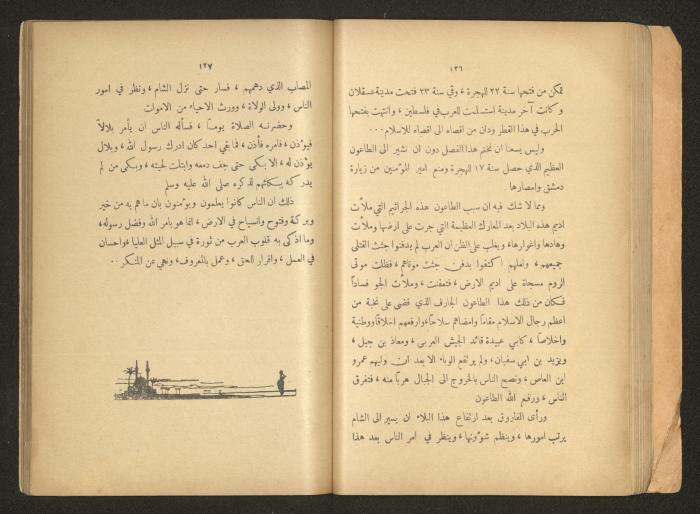 ١٣٦
تمكن من فتحها سنة ٢٢ للهجرة ، وفي سنة ٢٣ فتحت مدينة عسقلان
وكانت آخر مدينة استسلمت للعرب في فلسطين ، وانتهت بفتحها
الحرب في هذا القطر ودان من اقصاه الى اقصاه للاسلام ...
وليس يسعنا ان نختم هذا الفصل دون ان نشير الى الطاعون
العظيم الذي حصل سنة ١٧ للهجرة ومنع امير المؤمنين من زيارة
دمشق وامصارها
ومما لا شك فيه ان سبب الطاعون هذه الجراثيم التي ملأت
اديم هذه البلاد بعد المعارك العظيمة التي جرت على ارضها وملأت
وهادها واغوارها ، ويغلب على الظن ان العرب لم يدفنوا جثث القتلى
جميعهم ، ولعلهم اكتفوا بدفن جثث موتاهم ، فظلت موتى
الروم مسجاة على اديم الارض ، فتعفنت ، وملأت الجو فساداً
فكان من ذلك هذا الطاعون الجارف الذي قضى على نخبة من
اعظم رجال الاسلام مقاماً وامضاهم سلاحاً ، وارفعهم اخلاقاً ووطنية
واخلاصاً ، كابي عبيدة قائد الجيش العربي ، ومعاذ بن جبل ،
ويزيد بن ابي سفيان ، ولم يرتفع الوباء الا بعد ان وليهم عمرو
ابن العاص ، ونصح الناس بالخروج الى الجبال هرباً منه ، فتفرق
الناس ، ورفع الله الطاعون
ورأى الفاروق بعد ارتفاع هذا البلاء ان يسير الى الشام
يرتب امورها ، وينظم شؤونها ، وينظر في امر الناس بعد هذا
١٣٧
المصاب الذي دهمهم ، فسار حتى نزل الشام ، ونظر في امور
الناس ، وولى الولاة ، وورث الاحياء من الاموات
وحضرته الصلاة يوماً ، فسأله الناس ان يأمر بلالاً
فيؤذن ، فامره فأذن ، فما بقي احد كان ادرك رسول الله ، وبلال
يؤذن له ، الا بكى حتى جف دمعه وابتلت لحيته ، وبكى من لم
يدركه ببكائهم لذكره صلى الله عليه وسلم
ذلك ان الناس كانوا يعلمون ويؤمنون بان ما هم به من خير
وبركة وفتوح وانسياح في الارض ، انما هو بامر الله وفضل رسوله ،
وما اذكى به قلوب العرب من ثورة في سبيل المثل العليا ، واحسان
في العمل ، واقرار للحق ، وعمل بالمعروف ، ونهي عن المنكر ..